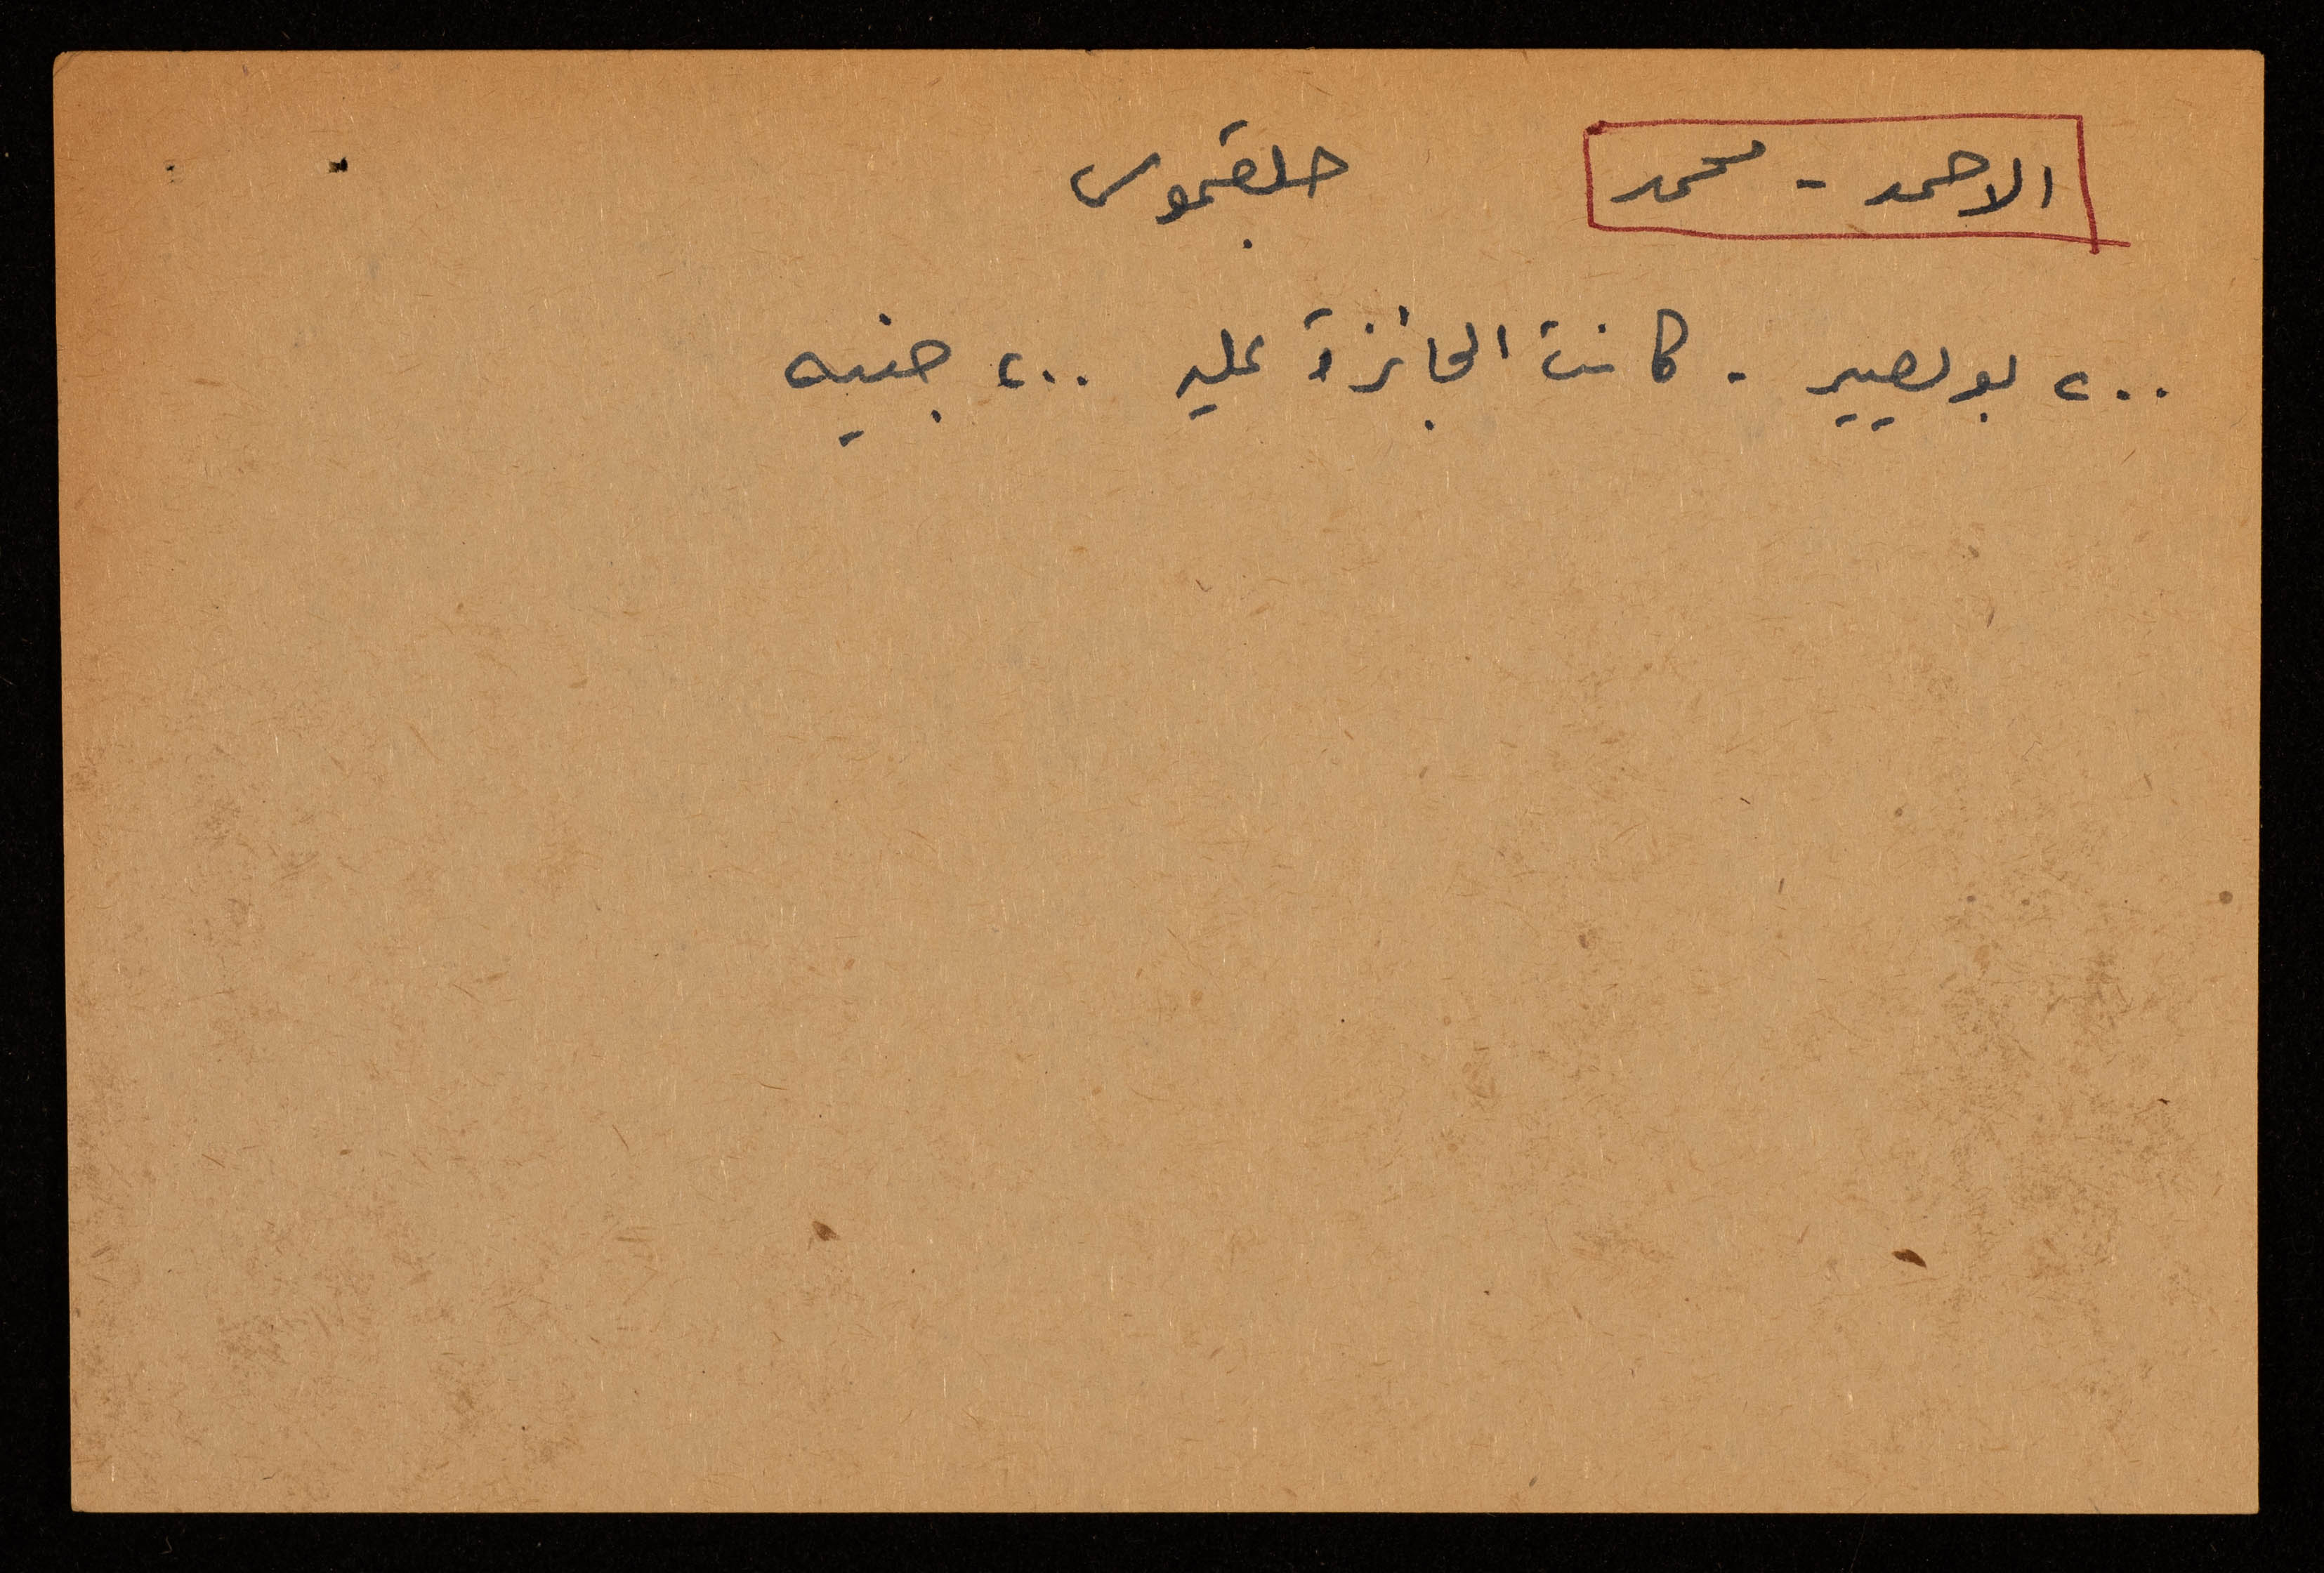 الاحمد - محمد جلقموس
٢٠٠ بوليصير - كانت الجائزة عليه ٢٠٠ جنيه